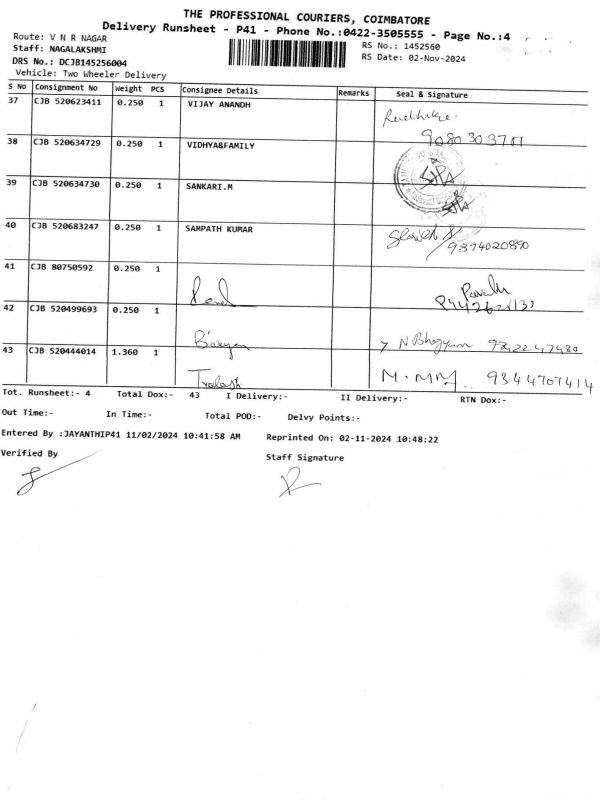 THE PROFESSIONAL COURIERS, COIMBATORE
Delivery Runsheet - P41 - Phone No.:0422-3505555 - Page No.:4
Route: V N R NAGAR
RS No.: 1452560
Staff: NAGALAKSHMI
RS Date: 02-Nov-2024
DRS No.: DCJB145256004
Vehicle: Two Wheeler Delivery
S No Consignment No Weight PCS Consignee Details Remarks Seal & Signature
37 CJB 520623411 0.250 1 VIJAY ANANDH
38 CJB 520634729 0.250 1 VIDHYA&FAMILY
39 CJB 520634730 0.250 1 SANKARI.M
40 CJB 520683247 0.250 1 SAMPATH KUMAR
9394020890
41 CJB 80750592 0.250 1
42 CJB 520499693 0.250 1
N Bhogyam
43 CJB 520444014 1.360 1
9344707414
Tot. Runsheet:- 4 Total Dox:- 43 I Delivery:- II Delivery:- RTN Dox:-
Out Time:- In Time:- Total POD:- Delvy Points:-
Entered By :JAYANTHIP41 11/02/2024 10:41:58 AM Reprinted On: 02-11-2024 10:48:22
Verified By Staff Signature